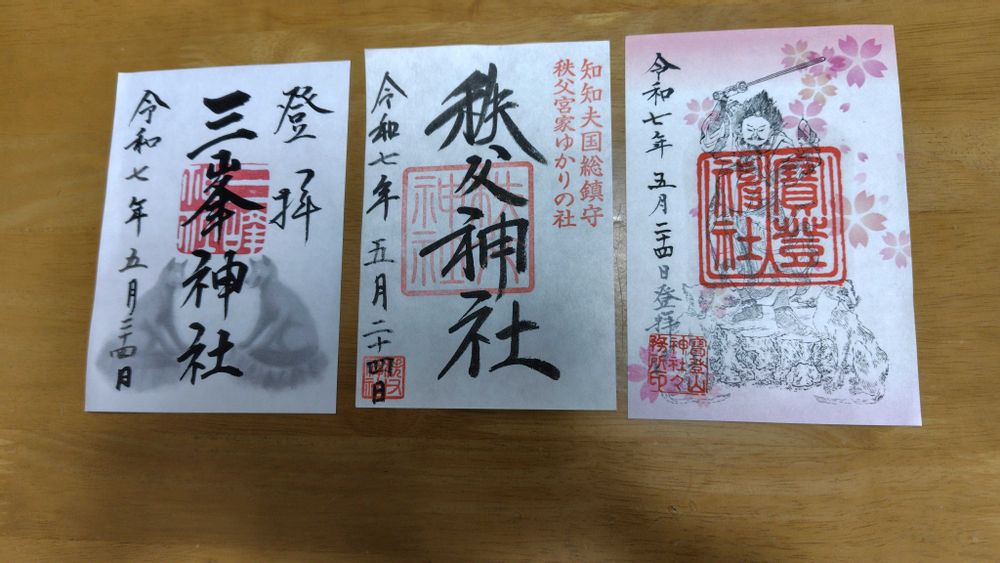 登拝
三峯神社
令和七年五月二四日
三峰
神社
知知夫国総鎮守
秩父宮家ゆかりの社
秩父神社
令和七年五月二十四日
秩父
神社
令和七年五月二十四日登拝
寶登
山神社
寶登山
神社々
務所印